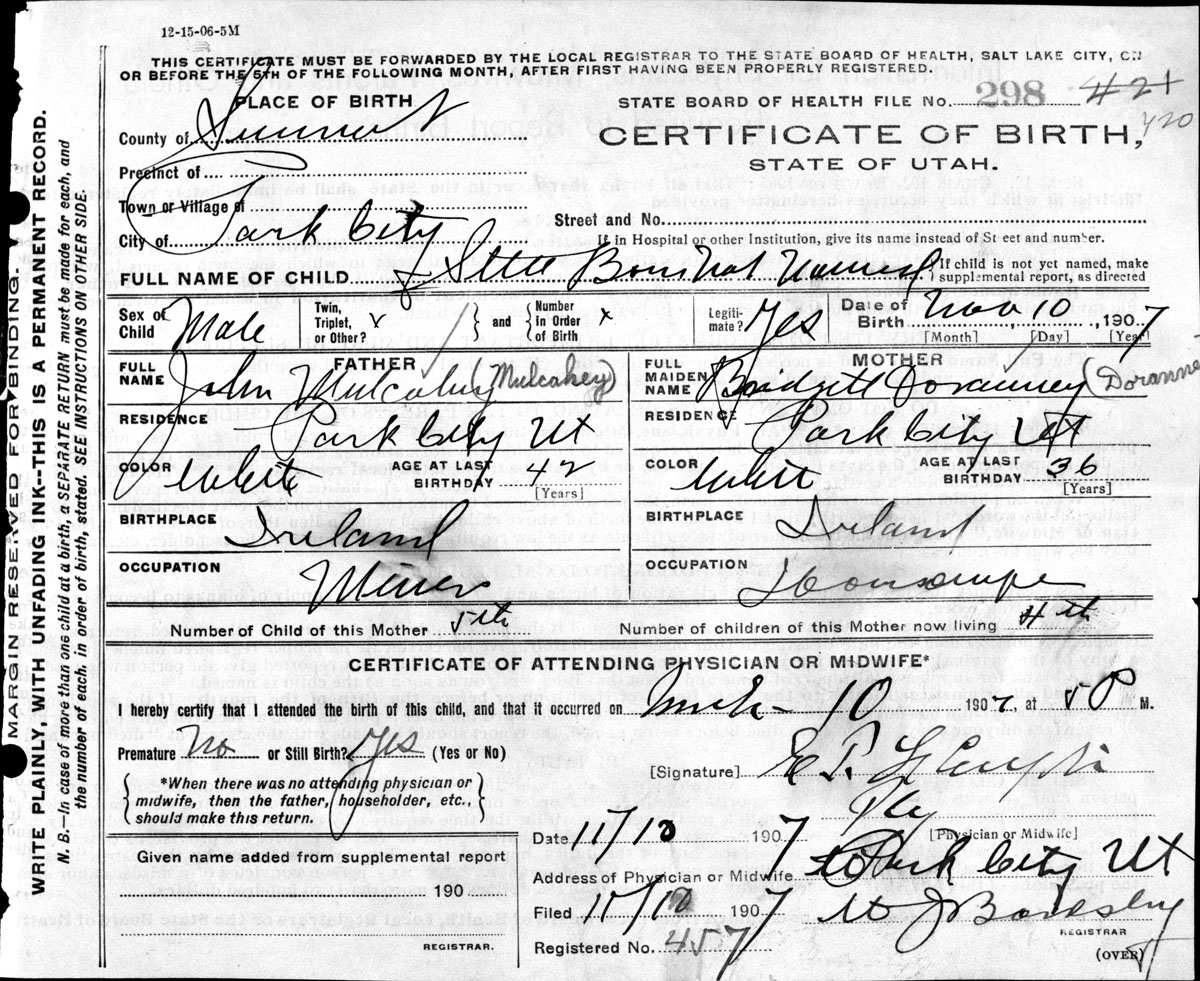 12-15-06-5M
THIS CERTIFICATE MUST BE FORWARDED BY THE LOCAL REGISTRAR TO THE STATE BOARD OF HEALTH, SALT LAKE CITY, ON
OR BEFORE THE 5TH OF THE FOLLOWING MONTH, AFTER FIRST HAVING BEEN PROPERLY REGISTERED.
PLACE OF BIRTH
County of Summit
Precinct of
Town or Village of
City of Park City
STATE BOARD OF HEALTH FILE No. 298 #21
420
CERTIFICATE OF BIRTH,
STATE OF UTAH.
Street and No.
If in Hospital or other Institution, give its name instead of Street and number.
FULL NAME OF CHILD Still Born Not Named { If child is not yet named, make supplemental report, as directed
Sex of Child Male Twin, Triplet, or Other? x } and { Number In Order of Birth x Legiti-mate? Yes Date of Birth Nov 10, 1907
[Month] [Day] [Year]
FATHER
FULL NAME John Mulcahey (Mulcahey)
RESIDENCE Park City Ut
COLOR White AGE AT LAST BIRTHDAY 42
[Years]
BIRTHPLACE Ireland
OCCUPATION Miner
MOTHER
FULL MAIDEN NAME Bridgett Doranney (Dorannie
RESIDENCE Park City Ut
COLOR White AGE AT LAST BIRTHDAY 36
[Years]
BIRTHPLACE Ireland
OCCUPATION
Number of Child of this Mother 5th Number of children of this Mother now living 4th
CERTIFICATE OF ATTENDING PHYSICIAN OR MIDWIFE*
I hereby certify that I attended the birth of this child, and that it occurred on 10 1907, at 5 P M.
Premature No or Still Birth? Yes (Yes or No)
*When there was no attending physician or
midwife, then the father, householder, etc.,
should make this return.
[Signature]
[Physician or Midwife]
Date 11/10 1907
Address of Physician or Midwife Park City Ut
Filed 11/12 1907
REGISTRAR
Registered No. 457
(OVER)
Given name added from supplemental report
190
REGISTRAR.
MARGIN RESERVED FOR BINDING.
WRITE PLAINLY, WITH UNFADING INK--THIS IS A PERMANENT RECORD.
N. B.--In case of more than one child at a birth, a SEPARATE RETURN must be made for each, and
the number of each, in order of birth, stated. SEE INSTRUCTIONS ON OTHER SIDE.